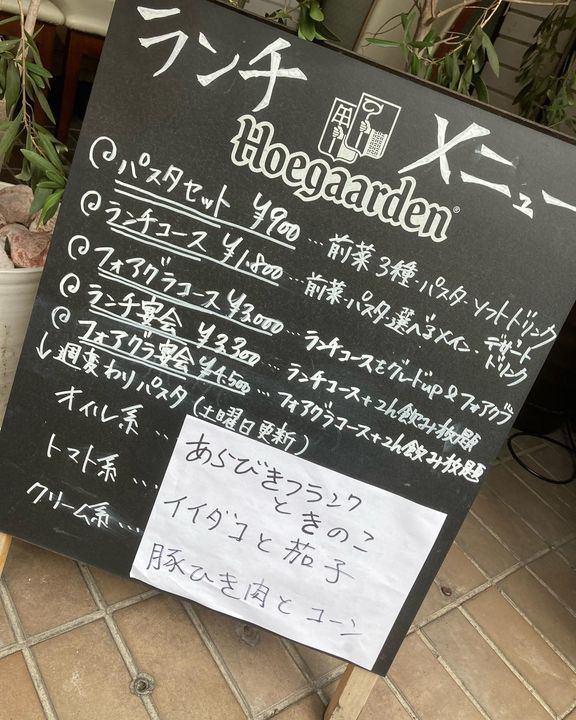 ランチ メニュー
Hoegaarden®
パスタセット ¥900 … 前菜3種・パスタ・ソフトドリンク
ランチコース ¥1.800 … 前菜・パスタ・選べるメイン・デザート・ドリンク
フォアグラコース ¥3,000 … ランチコースをグレードup & フォアグラ
ランチ宴会 ¥3,300 … ランチコース+2h飲み放題
フォアグラ宴会 ¥4.500 … フォアグラコース+2h飲み放題
↓週変わりパスタ(土曜日更新)
オイル系 … あらびきフランクときのこ
トマト系 … イイダコと茄子
クリーム系 … 豚ひき肉とコーン